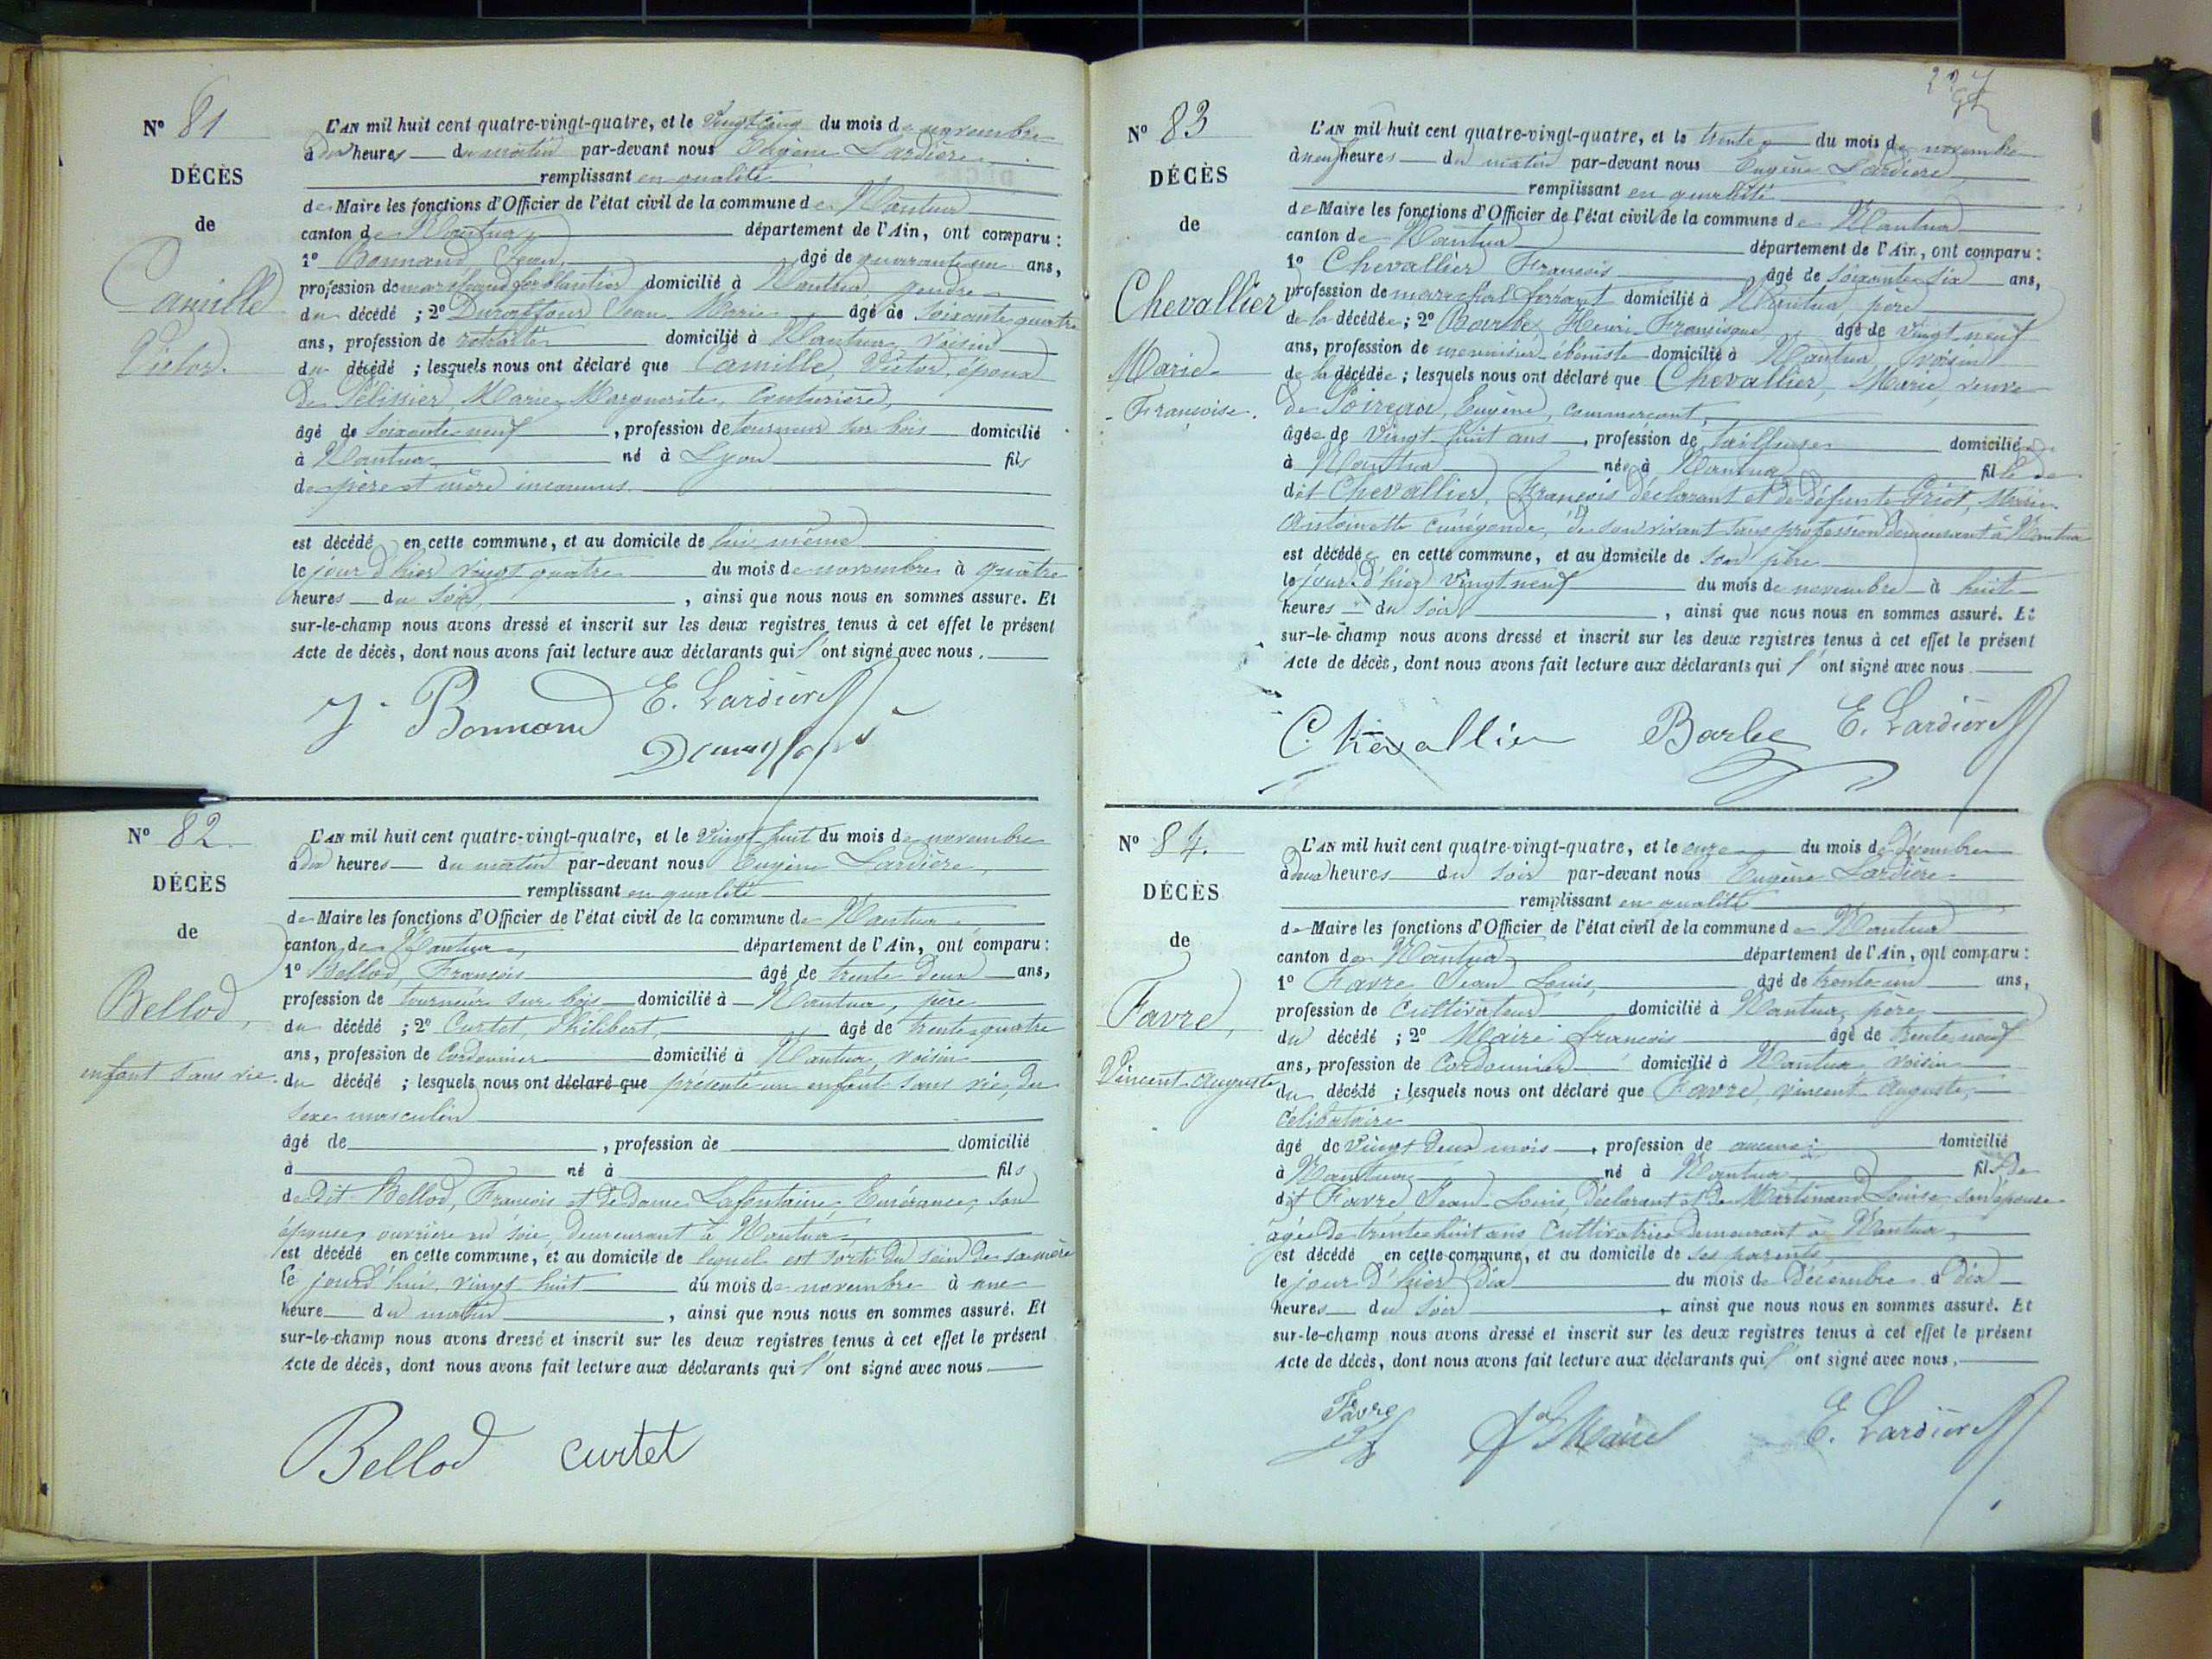 N° 81
DÉCÈS
de
Camille
Victor.
L'AN mil huit cent quatre-vingt-quatre, et le vingt cinq du mois de novembre
à dix heures du matin par-devant nous Eugène Lardière
remplissant en qualité
de Maire les fonctions d'Officier de l'état civil de la commune de Nantua
canton de Nantua département de l'Ain, ont comparu :
1° Bonnand Jean, âgé de quarante un ans,
profession de marchand ferblantier domicilié à Nantua, gendre
du décédé ; 2° Duraffour Jean Marie âgé de soixante quatre
ans, profession de retraité domicilié à Nantua, voisin
du décédé ; lesquels nous ont déclaré que Camille, Victor, époux
de Pélissier, Marie Marguerite, couturière,
âgé de soixante-neuf , profession de tourneur sur bois domicilié
à Nantua né à Lyon fils
de père et mère inconnus.
est décédé en cette commune, et au domicile de lui même
le jour d'hier vingt quatre du mois de novembre à quatre
heures du soir , ainsi que nous nous en sommes assuré. Et
sur-le-champ nous avons dressé et inscrit sur les deux registres tenus à cet effet le présent
Acte de décès, dont nous avons fait lecture aux déclarants qui l'ont signé avec nous.
J. Bonnand E. Lardière
N° 82
DÉCÈS
de
Bellod,
enfant sans vie.
L'AN mil huit cent quatre-vingt-quatre, et le vingt huit du mois de novembre
à dix heures du matin par-devant nous Eugène Lardière,
remplissant en qualité
de Maire les fonctions d'Officier de l'état civil de la commune de Nantua
canton de Nantua, département de l'Ain, ont comparu :
1° Bellod, François âgé de trente deux ans,
profession de tourneur sur bois domicilié à Nantua, père
du décédé ; 2° Curtet, Philibert, âgé de trente quatre
ans, profession de Cordonnier domicilié à Nantua, voisin
du décédé ; lesquels nous ont déclaré que présenté un enfant sans vie, du
sexe masculin
âgé de , profession de domicilié
à né à fils
de dit Bellod, François et de dame Lafontaine Emérance, son
épouse, ouvrière en soie, demeurant à Nantua
est décédé en cette commune, et au domicile de lequel est sorti du sein de sa mère
le jourd'hui vingt huit du mois de novembre à une
heure du matin , ainsi que nous nous en sommes assuré. Et
sur-le-champ nous avons dressé et inscrit sur les deux registres tenus à cet effet le présent
Acte de décès, dont nous avons fait lecture aux déclarants qui l'ont signé avec nous.
Bellod curtet
N° 83
DÉCÈS
de
Chevallier
Marie
Françoise.
L'AN mil huit cent quatre-vingt-quatre, et le trente du mois de novembre
à neuf heures du matin par-devant nous Eugène Lardière
remplissant en qualité
de Maire les fonctions d'Officier de l'état civil de la commune de Nantua
canton de Nantua département de l'Ain, ont comparu :
1° Chevallier François âgé de soixante-six ans,
profession de maréchal ferrant domicilié à Nantua, père
de la décédée ; 2° Barbe, Henri Francisque âgé de vingt neuf
ans, profession de menuisier ébéniste domicilié à Nantua, voisin
de la décédée ; lesquels nous ont déclaré que Chevallier, Marie, veuve
de Eugène, commerçant,
âgée de vingt-huit ans , profession de tailleuse domiciliée
à Nantua née à Nantua fille de
dit Chevallier, François déclarant et de défunte Griot, Marie
Antoinette Cunégonde, de son vivant sans profession demeurant à Nantua
est décédée en cette commune, et au domicile de son père
le jour d'hier vingt neuf du mois de novembre à huit
heures du soir , ainsi que nous nous en sommes assuré. Et
sur-le-champ nous avons dressé et inscrit sur les deux registres tenus à cet effet le présent
Acte de décès, dont nous avons fait lecture aux déclarants qui l'ont signé avec nous.
Chevallier Barbe E. Lardière
N° 84.
DÉCÈS
de
Favre,
Vincent Auguste
L'AN mil huit cent quatre-vingt-quatre, et le onze du mois de Décembre
à deux heures du soir par-devant nous Eugène Lardière
remplissant en qualité
de Maire les fonctions d'Officier de l'état civil de la commune de Nantua
canton de Nantua département de l'Ain, ont comparu :
1° Favre Jean Louis, âgé de trente-un ans,
profession de Cultivateur domicilié à Nantua, père
du décédé ; 2° Maire François âgé de trente neuf
ans, profession de Cordonnier domicilié à Nantua, voisin
du décédé ; lesquels nous ont déclaré que Favre, vincent Auguste,
célibataire
âgé de vingt deux mois , profession de aucune domicilié
à Nantua né à Nantua fils de
dit Favre, Jean Louis, déclarant et de Martinand Louise, son épouse
âgée de trente huit ans Cultivatrice demeurant à Nantua,
est décédé en cette commune, et au domicile de ses parents
le jour d'hier dix du mois de Décembre à dix
heures du soir , ainsi que nous nous en sommes assuré. Et
sur-le-champ nous avons dressé et inscrit sur les deux registres tenus à cet effet le présent
Acte de décès, dont nous avons fait lecture aux déclarants qui l'ont signé avec nous.
Favre Maire E. Lardière